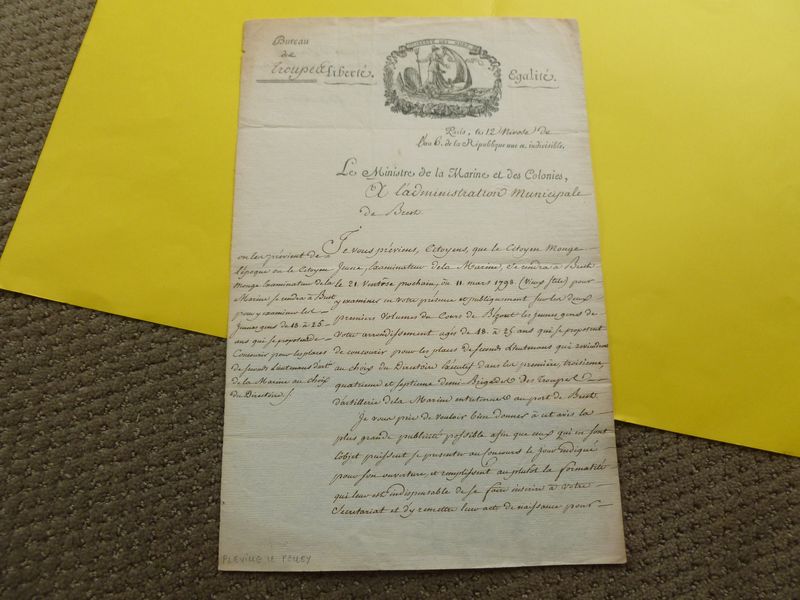 Bureau
des
Troupes
Liberté.
LIBERTÉ DES MERS
Egalité.
Paris, le 12 Nivose de
l'an 6. de la République une et indivisible.
Le Ministre de la Marine et des Colonies,
A l'administration Municipale
de Brest
on les prévient de
l'époque où le Citoyen
Monge Examinateur de la
Marine se rendra à Brest
pour y examiner les
Jeunes gens de 18 à 25
ans qui se proposent de
Concourir pour les places
de seconds Lieutenans d'art.
de la Marine au choix
du Directoire
Je vous préviens, Citoyens, que le Citoyen Monge
Jeune, Examinateur de la Marine, se rendra à Brest
le 21. Ventôse prochain, ou 11 mars 1798. (Vieux stile) pour
y examiner en votre présence et publiquement sur les deux
premiers volumes du Cours de Bezout les jeunes gens de
votre arrondissement agés de 18. à 25 ans qui se proposent
de concourir pour les places de seconds Lieutenans qui reviendront
au choix du Directoire Exécutif dans les première, troisieme,
quatrieme et septieme demi Brigades des Troupes
d'artillerie de la Marine entretenues au port de Brest.
Je vous prie de vouloir bien donner à cet avis la
plus grande publicité possible afin que ceux qui en font
l'objet puissent se presenter au concours le jour indiqué
pour son ouverture, et remplissent au plutot la formalité
qui leur est indispensable de se faire inscrire à votre
Secretariat et d'y remettre leur acte de naissance pour
PLEVILLE LE PELLEY